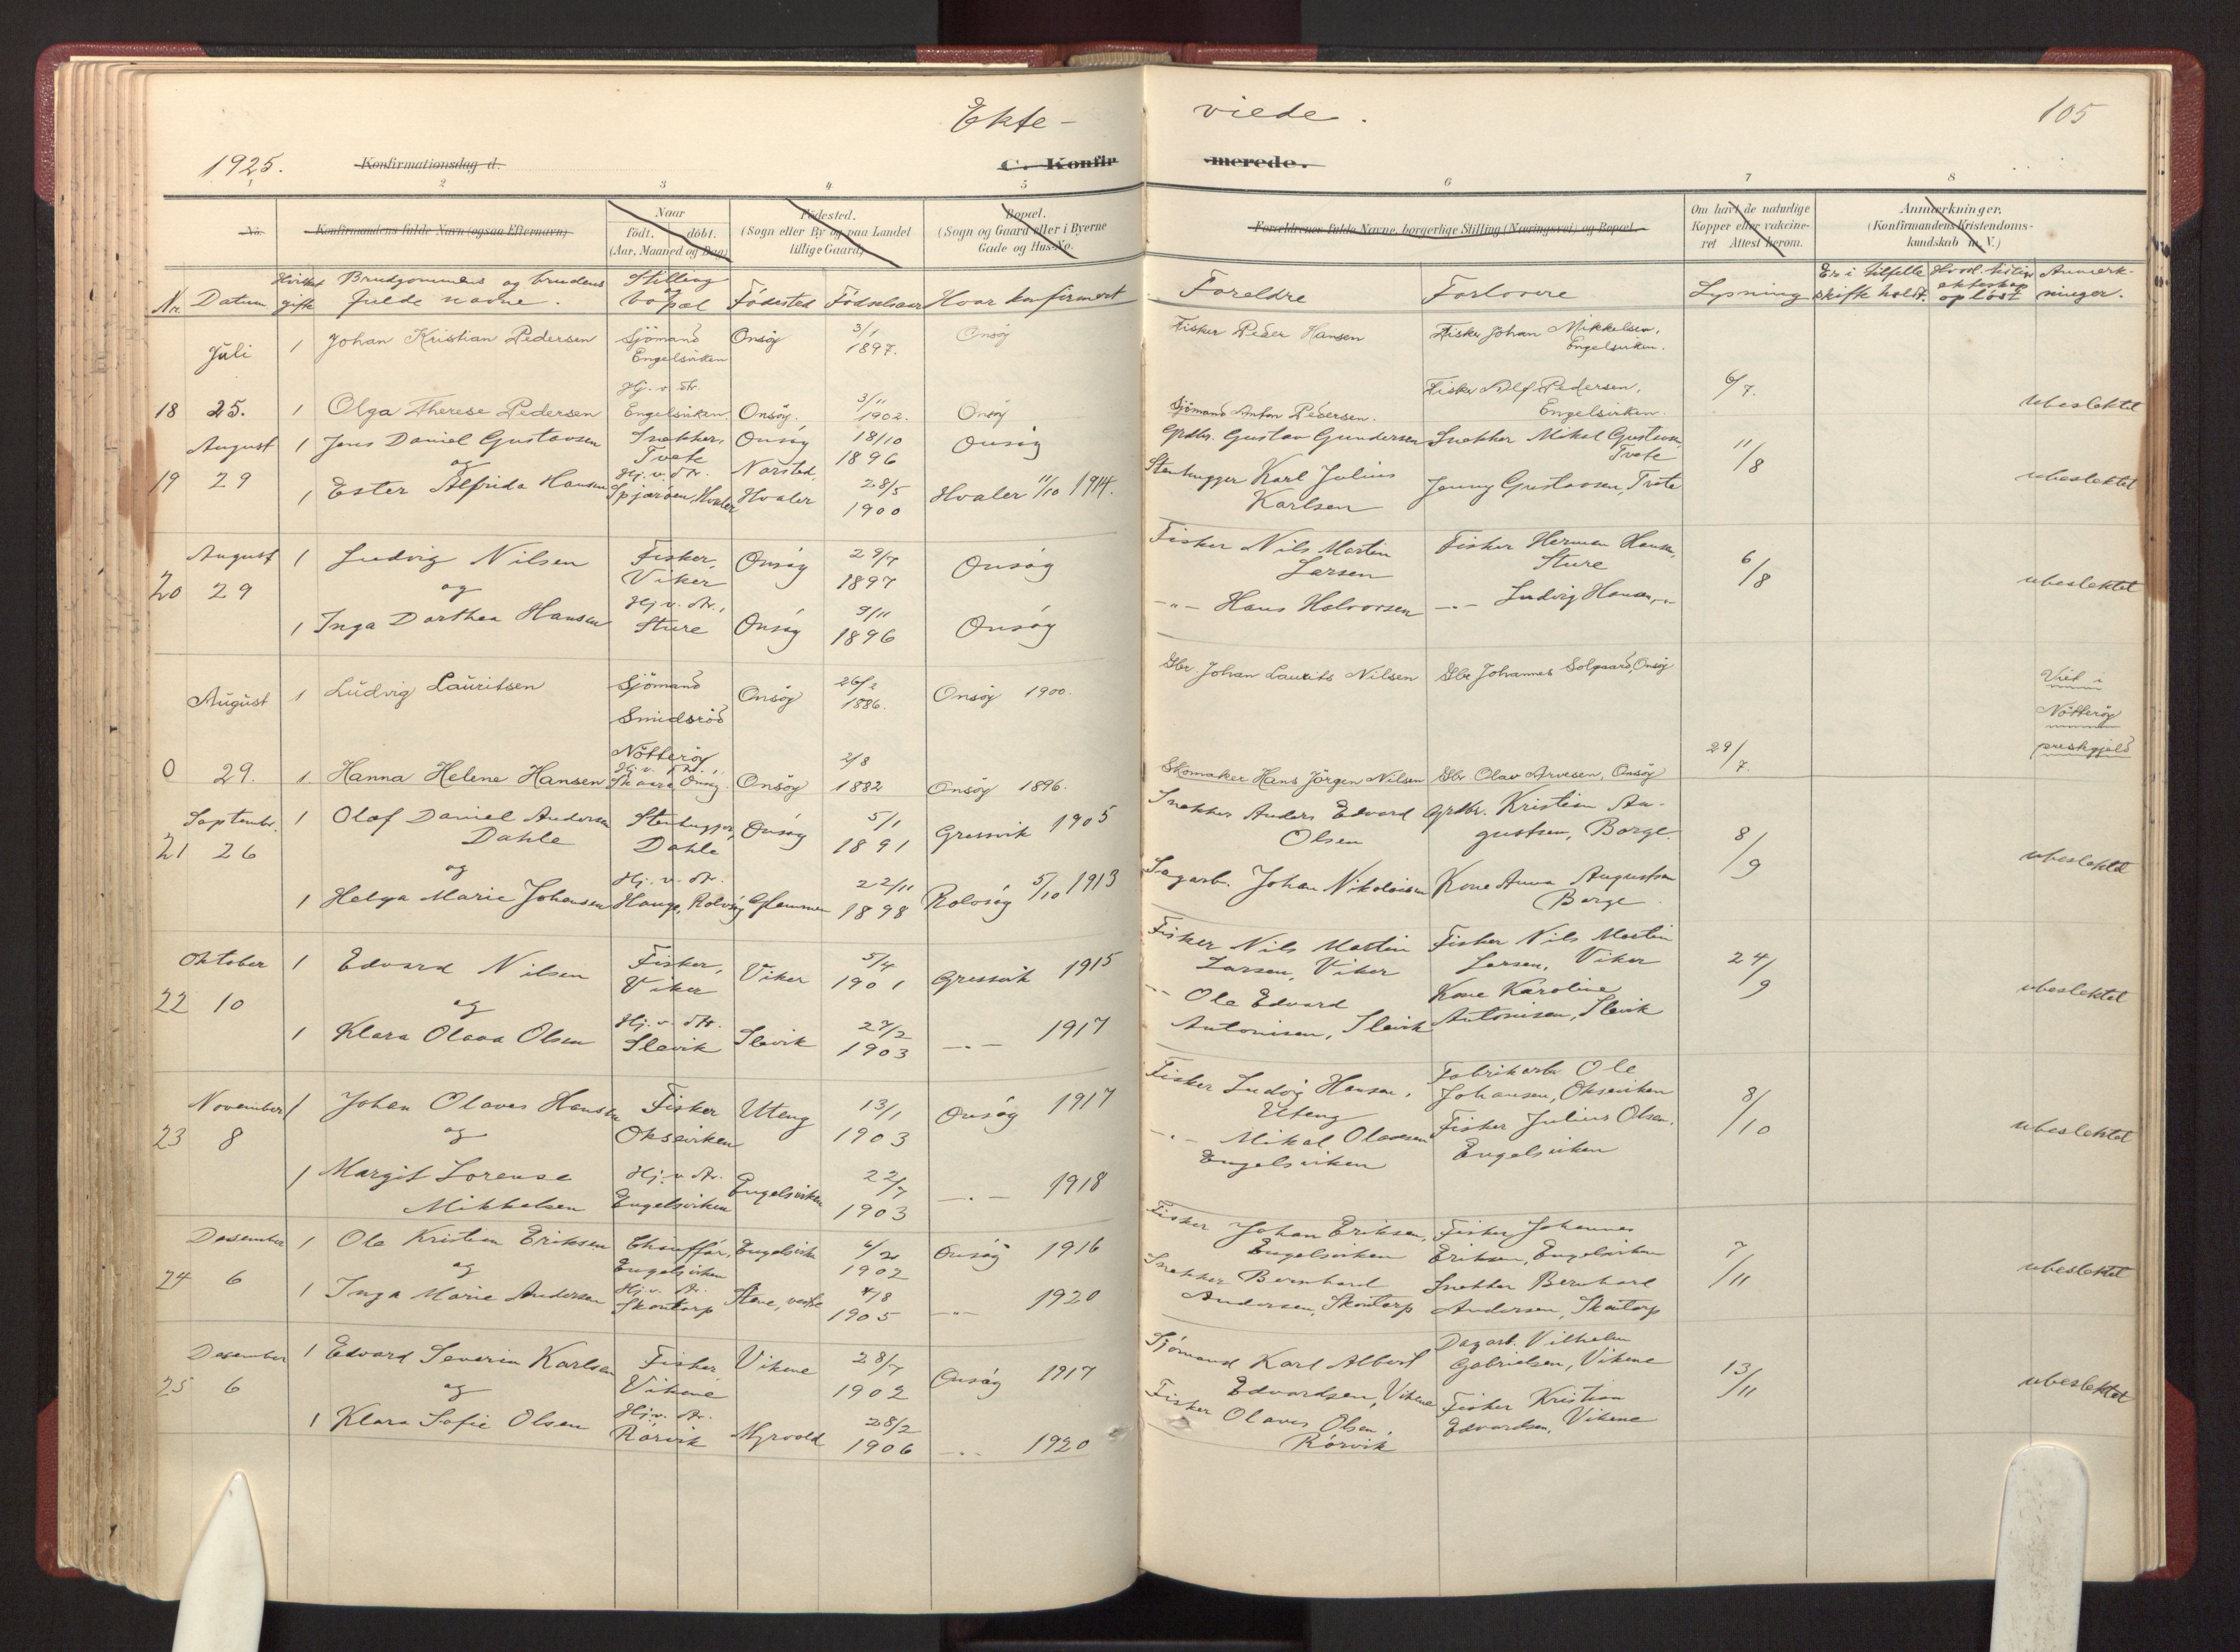 Ekte-
viede.
105
1925.
Konfirmationsdag d.
C. Konfir
merede.
1 2 3 4 5 6 7 8
No.
Konfirmandens fulde Navn (ogsaa Efternavn)
Naar
født. døbt.
(Aar, Maaned og Dag)
Fødested.
(Sogn eller By og paa Landet
tillige Gaard)
Bopæl.
(Sogn og Gaard eller i Byerne
Gade og Hus-No.
Forældrenes fulde Navne, borgerlige Stilling (Næringsvei) og Bopæl.
Om havt de naturlige
Kopper eller vakcine-
ret Attest herom.
Anmærkninger.
(Konfirmandens Kristendoms-
kundskab m. V.)
Nr. Datum Hvilket gifte Brudgommens og brudens fulde navne. Stilling og bopæl Fødested Fødselsaar Hvor konfirmert
Foreldre Forlovere Lysning Er i tilfelle skifte holdt. Hvorl. sidste ekteskap opløst Anmerk-
ninger.
Juli 1 Johan Kristian Pedersen Sjömand Onsöy 3/1 Onsöy
Engelsviken 1897.
Fisker Peder Hansen Fisker Johan Mikkelsen,
Engelsviken.
Hj. v. Fr. 3/11
18 25. 1 Olga Therese Pedersen Engelsviken Onsöy. 1902. Onsöy
Sjömand Anton Pedersen. Fisker Alf Pedersen,
Engelsviken. 6/7. ubeslektet
August 1 Jens Daniel Gustavsen Snekker, Onsøy 18/10 Onsøy
og Tvete 1896
19 29 1 Ester Alfrida Hansen Hj. v. Fr. Norsted, 28/5 Hvaler 11/10 1914.
Spjærøen, Hvaler Hvaler 1900
Grdbr. Gustav Gundersen Snekker Mikal Gustavsen
Tvete 11/8
Stenhugger Karl Julius
Karlsen Jenny Gustavsen, Tvete ubeslektet
August 1 Ludvig Nilsen Fisker, Onsøy 29/7 Onsøy
20 29 og Viker 1897
1 Inga Dorthea Hansen Hj. v. Fr., Sture Onsøy 9/11 1896 Onsøy
Fisker Nils Martin
Larsen Fisker Herman Hansen,
Sture 6/8
-"- Hans Halvorsen -"- Ludvig Hansen, -"- ubeslektet
August 1 Ludvig Lauritsen Sjömand Onsöy 26/2 1886. Onsöy 1900.
Smidsröd
Nötteröy
0 29. 1. Hanna Helene Hansen Hj. v. Fr., Skaare Onsöy. Onsöy 2/8 1882 Onsöy 1896.
Gbr. Johan Laurits Nilsen Gbr Johannes Solgaard, Onsöy
Skomaker Hans Jörgen Nilsen Gbr. Olav Arvesen, Onsöy 29/7.
Viet i
Nötteröy
prestegjeld
Septembr. 1 Olaf Daniel Andersen Stenhugger, Onsøy 5/1 Gressvik 1905
Dahle Dahle 1891
21 26 og
1 Helga Marie Johansen Hj. v. Fr. Hauge, Rolvsøy Glemmen 22/11 1898 Rolvsøy 5/10 1913
Snekker Anders Edvard
Olsen Grdbr. Kristian Au-
gustsen, Borge. 8/9
Sagarb. Johan Nikolaisen Kone Anna Augustsen
Borge ubeslektet
Oktober 1 Edvard Nilsen Fisker, Viker 5/4 Gressvik 1915
Viker 1901
22 10 og
1 Klara Olava Olsen Hj. v. Fr. Slevik Slevik 27/2 1903 -"- 1917
Fisker Nils Martin
Larsen, Viker Fisker Nils Martin
Larsen, Viker 24/9
-"- Ole Edvard
Antonisen, Slevik Kone Karoline
Antonisen, Slevik ubeslektet
November 1 Johan Olaves Hansen Fisker Uteng 13/1 Onsøy 1917
23 8 og Oksviken 1903
1 Margit Lorense
Mikkelsen Hj. v. Fr. Engelsviken Engelsviken 22/7 1903 -"- 1918
Fisker Ludvig Hansen,
Uteng Fabrikarb. Ole
Johansen, Oksviken 8/10
-"- Mikal Olavesen
Engelsviken Fisker Julius Olsen,
Engelsviken ubeslektet
Desember 1 Ole Kristian Eriksen Chauffør, Engelsviken 6/2 Onsøy 1916
24 6 og Engelsviken 1902
1 Inga Marie Andersen Hj. v. Fr. Skontorp Stene, 4/8 1905 -"- 1920
Fisker Johan Eriksen,
Engelsviken Fisker Johannes
Eriksen, Engelsviken 7/11
Snekker Bernhard
Andersen, Skontorp Snekker Bernhard
Andersen, Skontorp ubeslektet
Desember 1 Edvard Severin Karlsen Fisker, Vikene 28/7 Onsøy 1917
25 6 og Vikene 1902
1 Klara Sofie Olsen Hj. v. Fr. Rørvik Myrvold 28/2 1906 -"- 1920
Sjømand Karl Albert
Edvardsen, Vikene Dagarb. Vilhelm
Gabrielsen, Vikene 13/11
Fisker Olaves Olsen,
Rørvik Fisker Kristian
Edvardsen, Vikene ubeslektet